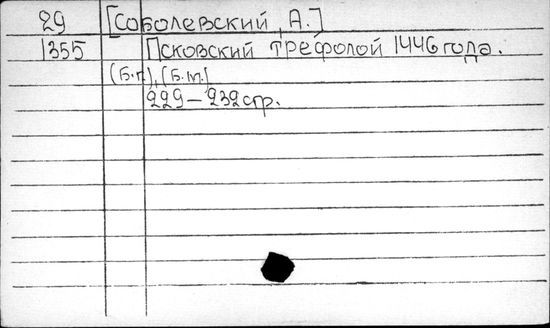 29 [Соболевский, А.]
1355 Псковский трефолой 1446 года.
(Б.г.), (Б.т.]
229 – 232 стр.